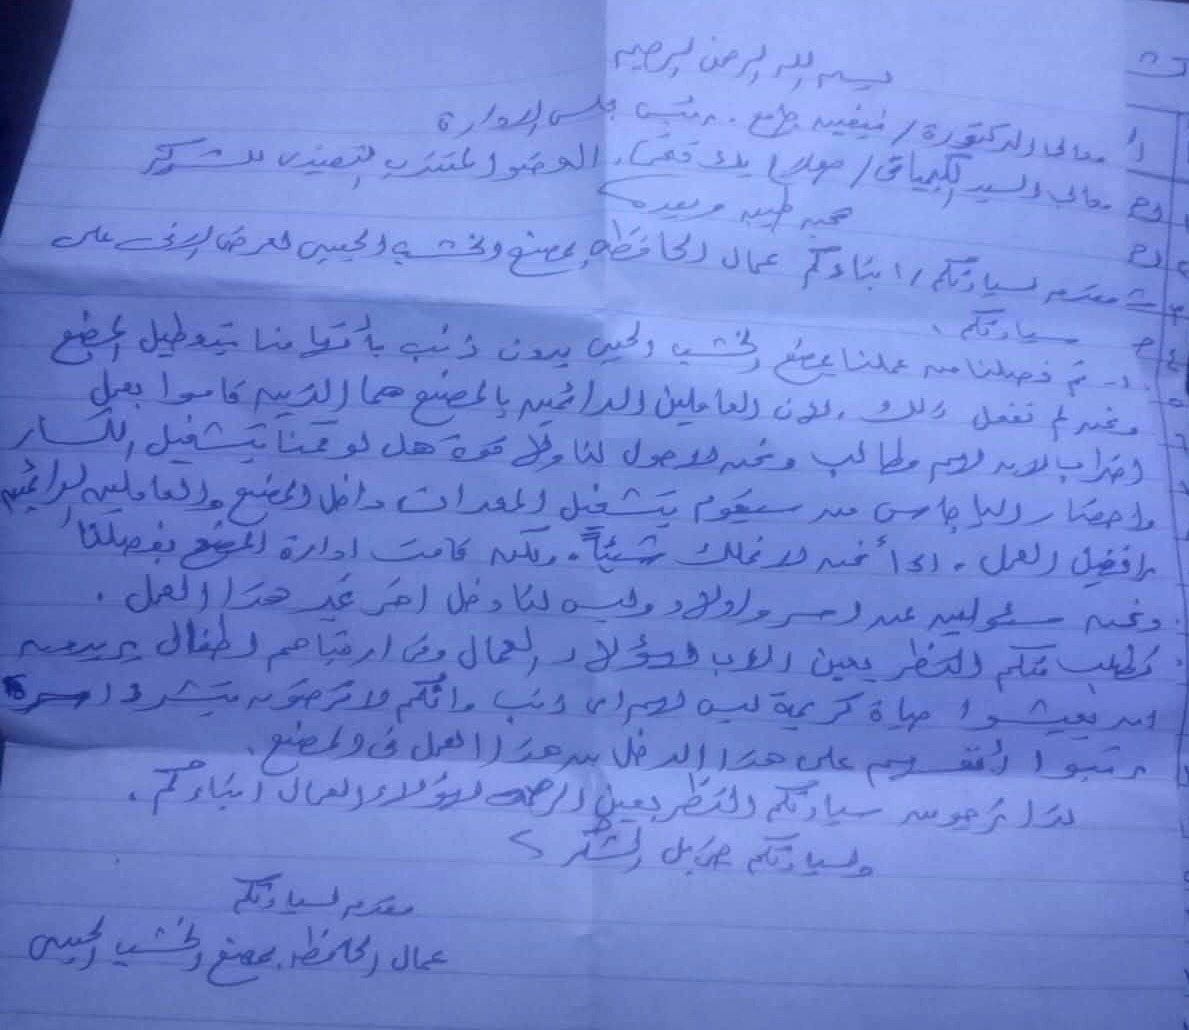 بسم الله الرحمن الرحيم
معالى الدكتورة / نيفين جامع. رئيس مجلس الادارة
معالى السيد الكيميائى / العضو المنتدب التنفيذى للشركة
تحيه طيبه وبعد
مقدمه لسيادتكم / ابناءكم عمال المحافظه بمصنع الخشب الحبيبى لعرض الاتى على
سيادتكم.
١- تم فصلنا من عملنا بمصنع الخشب الحبيبى بدون ذنب بأتهامنا بتعطيل المصنع
ونحن لم نفعل ذلك. لان العاملين الدائمين بالمصنع هما الذين قاموا بعمل
اضراب لان لهم مطالب ونحن لاحول لنا ولا قوة هل لو قمنا بتشغيل الكسار
واحضار من سيقوم بتشغيل المعدات داخل المصنع والعاملين الدائمين
رافضين العمل. اذاً نحن لا نملك شيئاً. ولكن قامت ادارة المصنع بفصلنا
ونحن مسئولين عن اسر واولاد وليس لنا دخل اخر غير هذا العمل.
نطلب منكم النظر بعين الاب لهؤلاء العمال وفى ارقباهم اطفال يريدون
ان يعيشوا حياة كريمة ليس لهم اى ذنب وانكم لا ترضون بتشرد اسر
رتبوا أنفسهم على هذا الدخل من هذا العمل فى المصنع.
لذا نرجو من سيادتكم النظر بعين الرحمه لهؤلاء العمال ابناءكم.
ولسيادتكم جزيل الشكر
مقدمه لسيادتكم
عمال المحافظه بمصنع الخشب الحبيبى